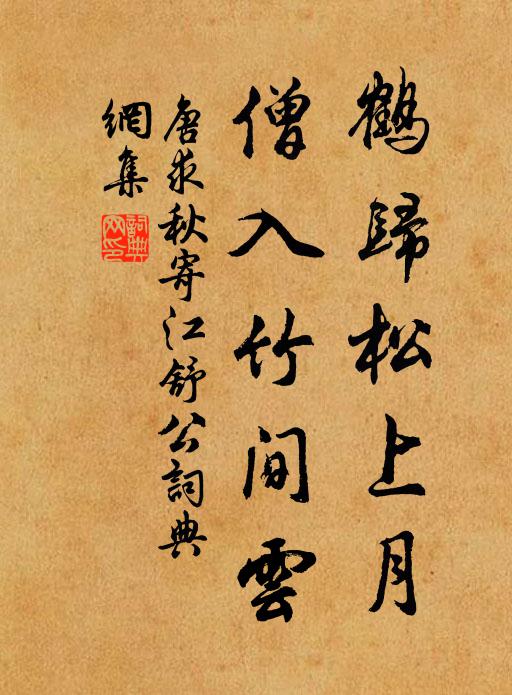 鶴歸松上月
僧入竹間雲
唐求秋寄江舒公詞典
網集
詞典網印